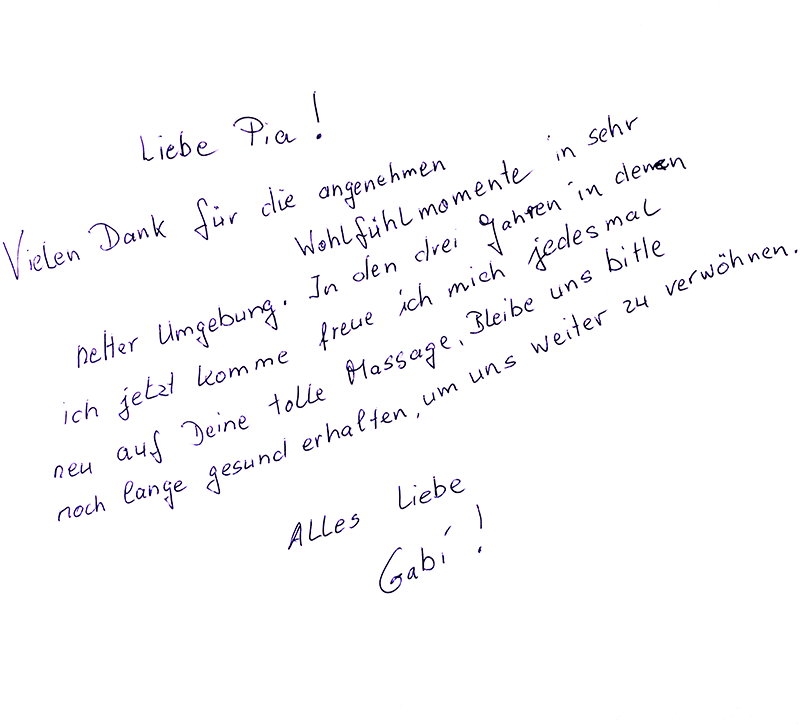 Liebe Pia!
Vielen Dank für die angenehmen
Wohlfühlmomente in sehr
netter Umgebung. In den drei Jahren in denen
ich jetzt komme freue ich mich jedesmal
neu auf Deine tolle Massage. Bleibe uns bitte
noch lange gesund erhalten, um uns weiter zu verwöhnen.
Alles Liebe
Gabi!